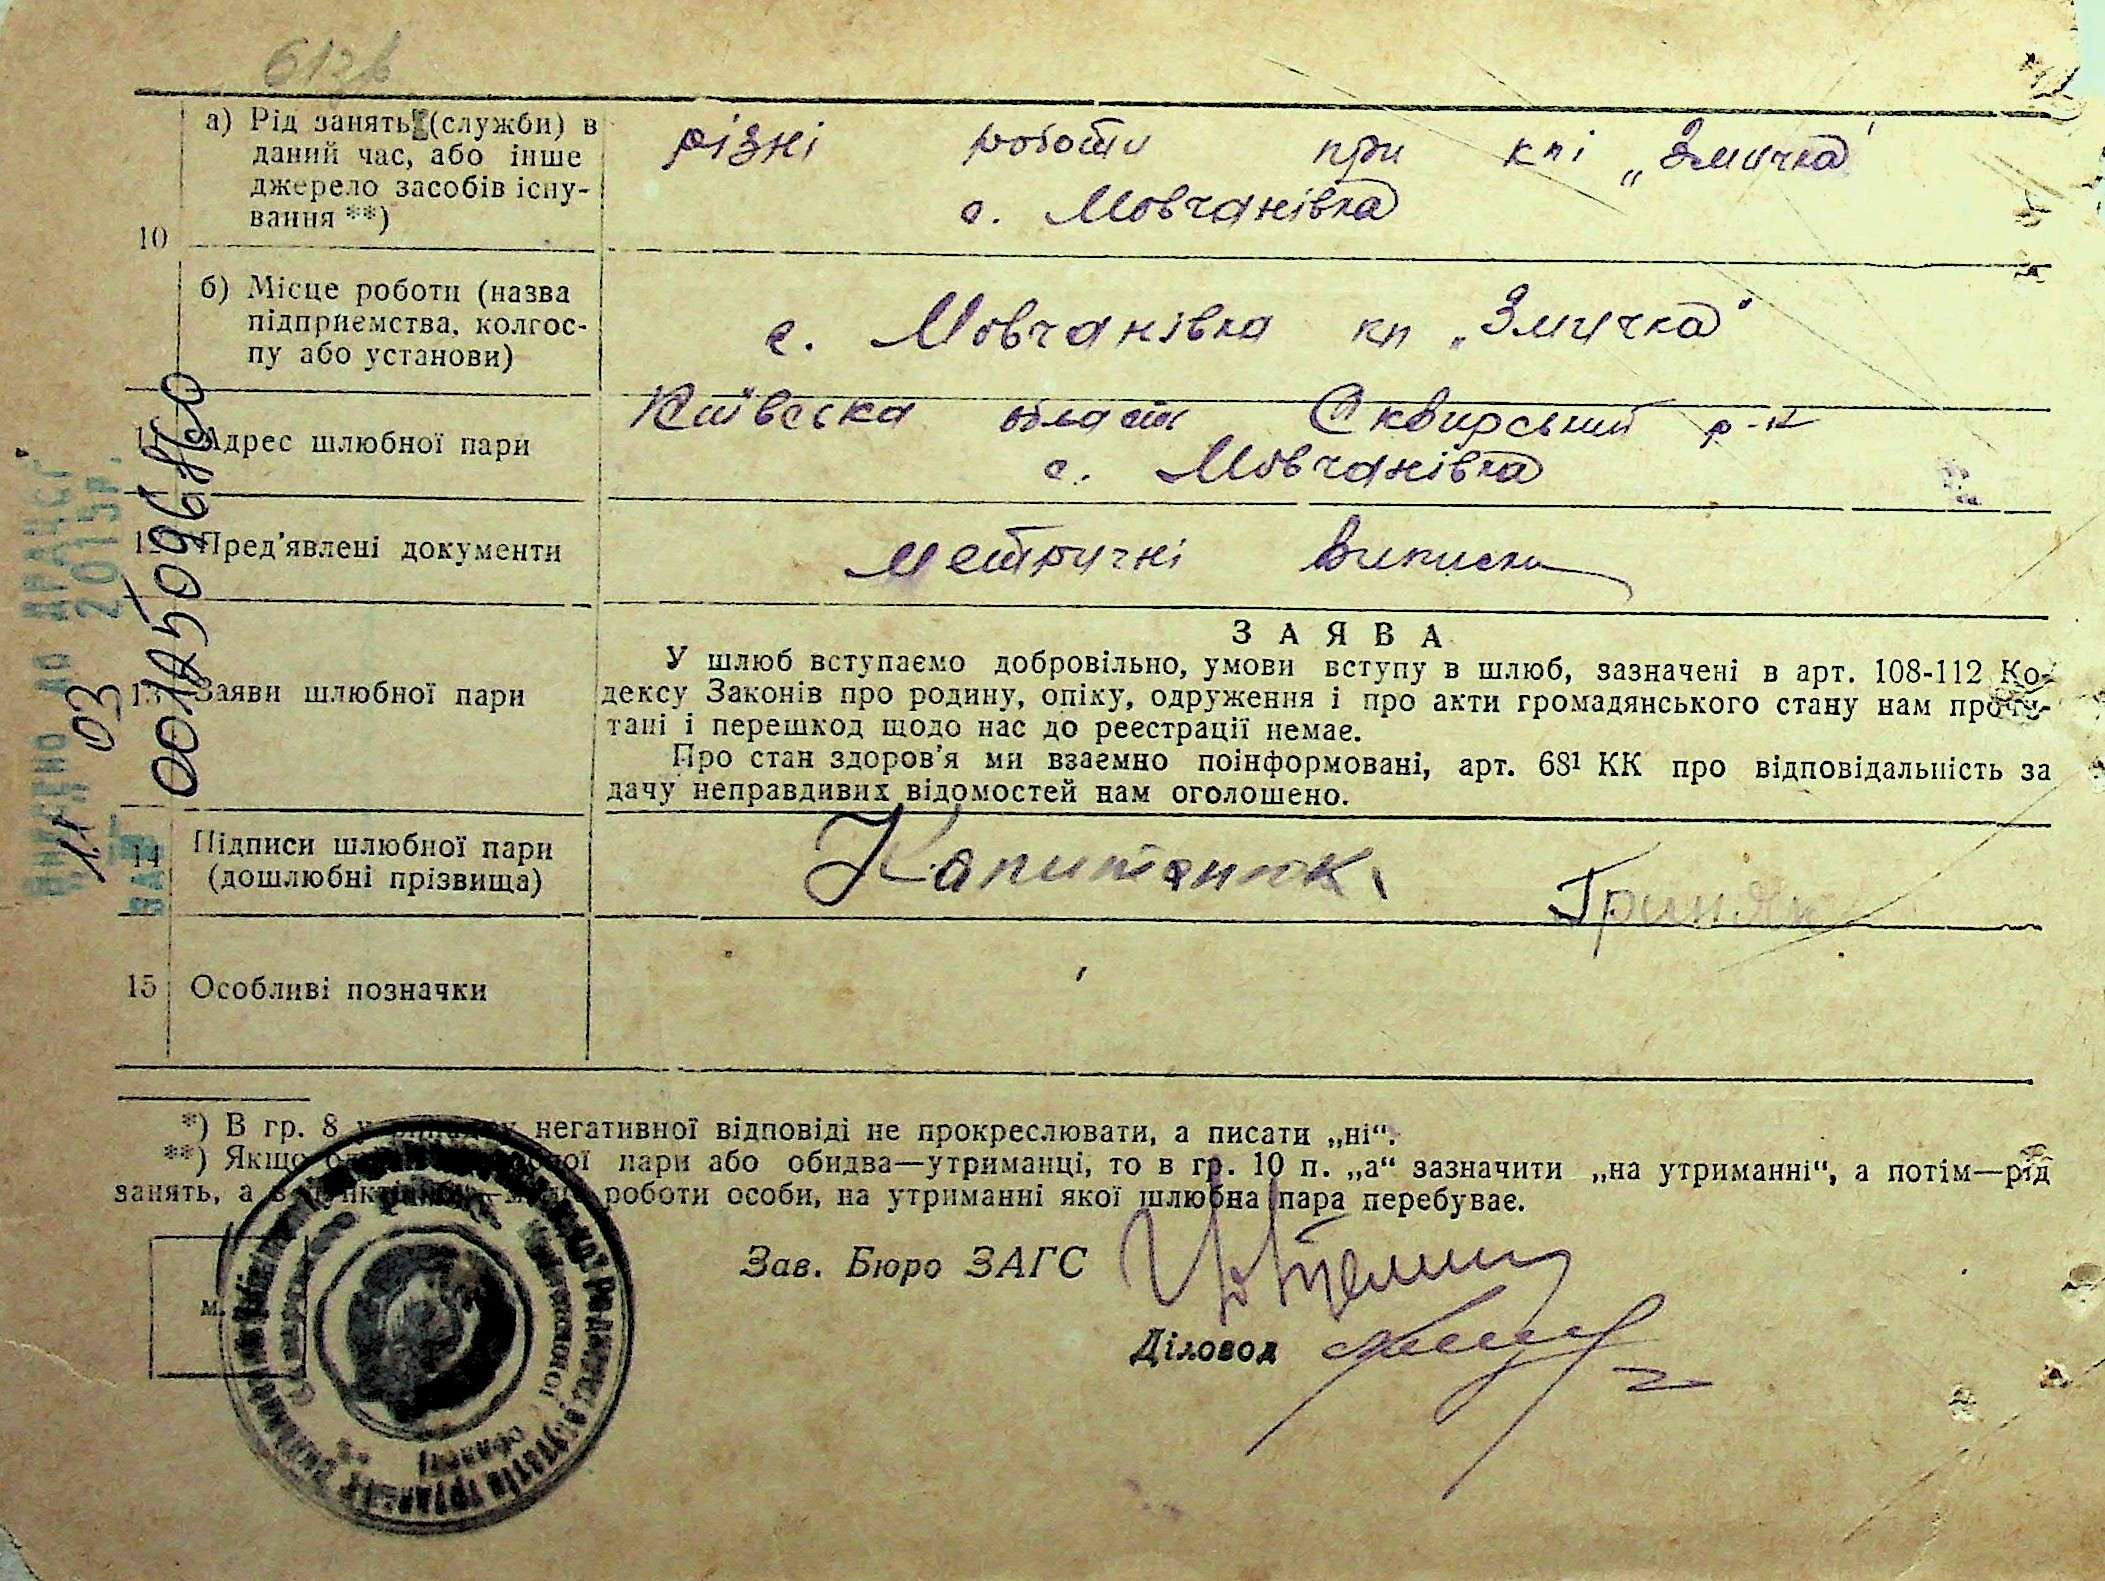 а) Рід занять (служби) в
даний час, або інше
джерело засобів існу-
вання **)
різні роботи при кпі „Змичка"
с. Мовчанівка
10
б) Місце роботи (назва
підприемства, колгос-
пу або установи)
с. Мовчанівка кп „Змичка"
11 Адрес шлюбної пари
Київска область Сквирський р-н
с. Мовчанівка
12 Пред'явлені документи
метричні виписки
13 Заяви шлюбної пари
ЗАЯВА
У шлюб вступаємо добровільно, умови вступу в шлюб, зазначені в арт. 108-112 Ко-
дексу Законів про родину, опіку, одруження і про акти громадянського стану нам прочи-
тані і перешкод щодо нас до реестрації немае.
Про стан здоров'я ми взаемно поінформовані, арт. 68¹ КК про відповідальність за
дачу неправдивих відомостей нам оголошено.
14 Підписи шлюбної пари
(дошлюбні прізвища)
Капитанюк
15 Особливі позначки
*) В гр. 8 у випадку негативної відповіді не прокреслювати, а писати „ні".
**) Якщо пари або обидва—утриманці, то в гр. 10 п. „а" зазначити „на утриманні", а потім—рід
занять, а в роботи особи, на утриманні якої шлюбна пара перебувае.
м.
Зав. Бюро ЗАГС
Діловод
ВНЕСЕНО ДО ДРАЦСГ
11 03 2015р.
ЗА №
00125096860